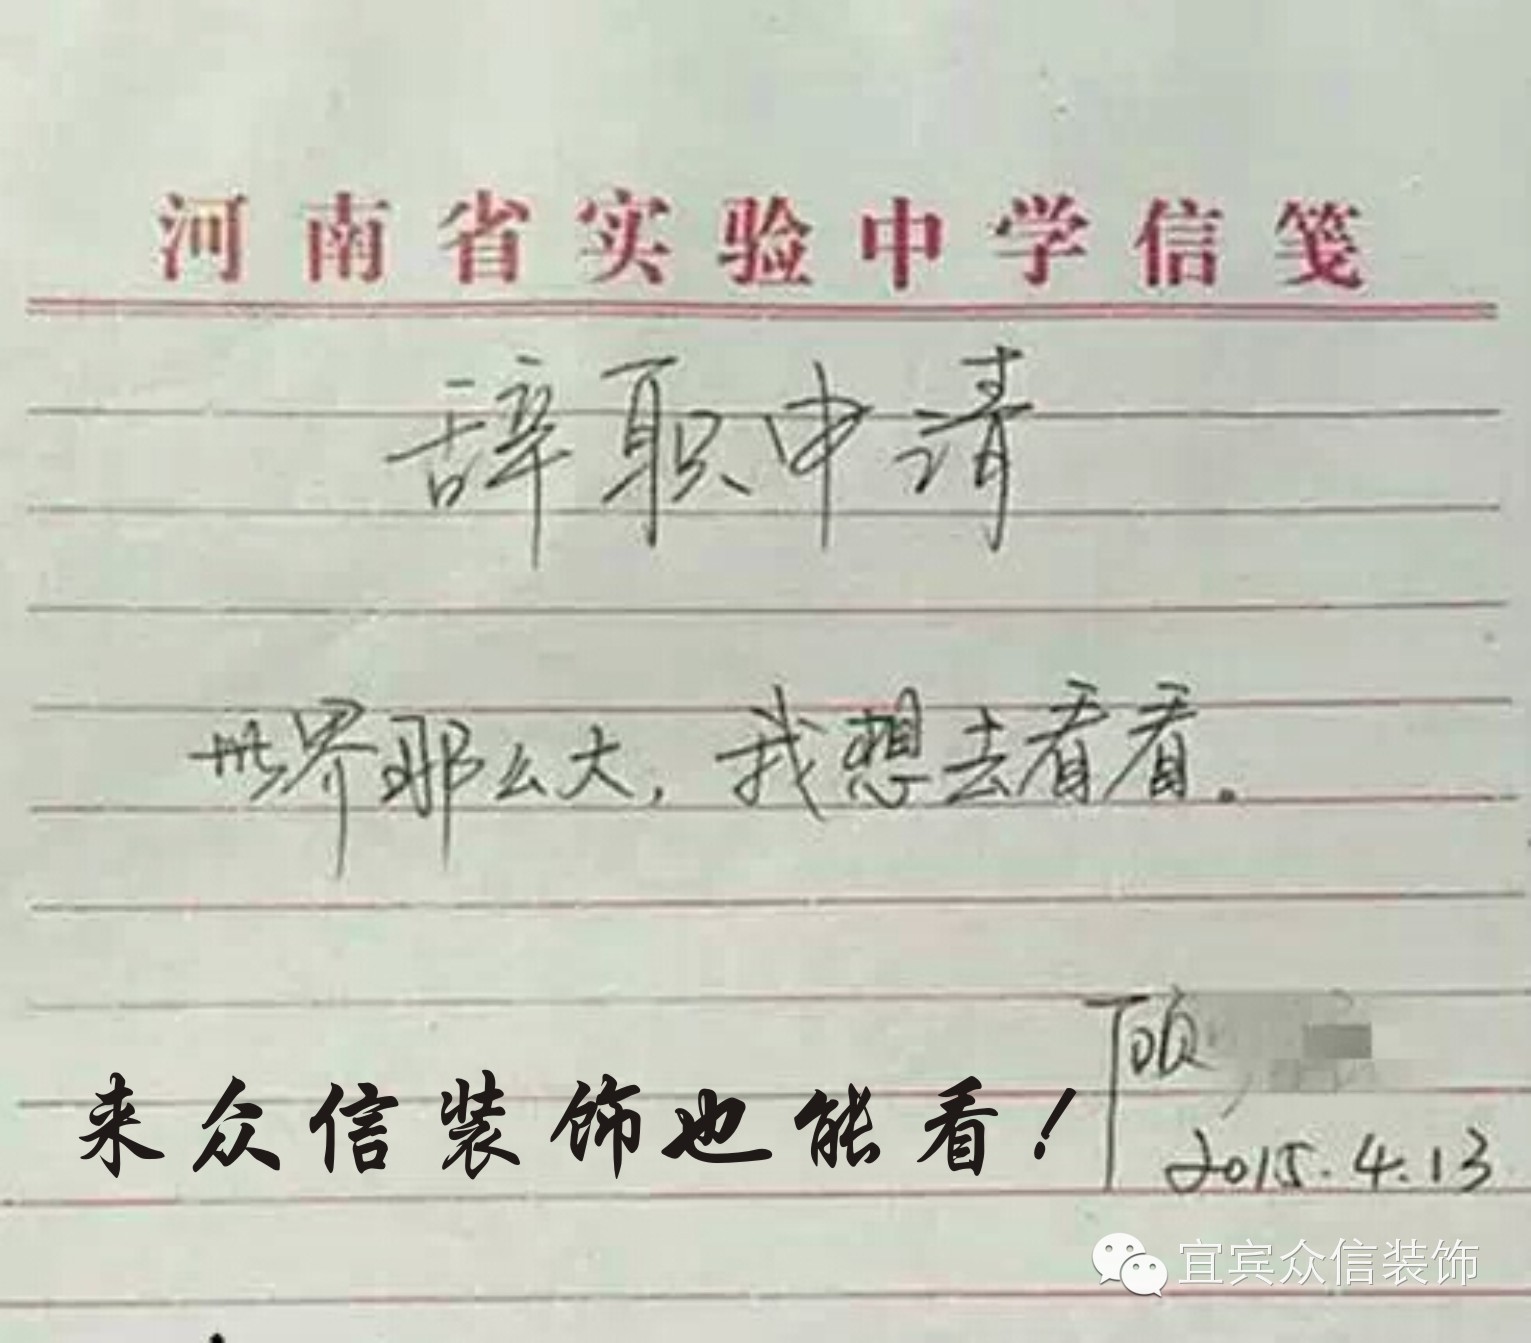 河南省实验中学信笺
辞职申请
世界那么大，我想去看看。
顾
来众信装饰也能看！
2015.4.13
宜宾众信装饰